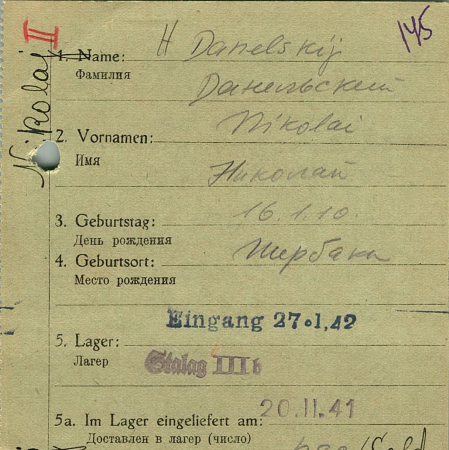 145
II
Nikolaj
1. Name: H Danelskij
Фамилия
Данельский
2. Vornamen: Nikolai
Имя
Николай
3. Geburtstag: 16.1.10.
День рождения
4. Geburtsort: Щербаки
Место рождения
Eingang 27.1,42
5. Lager:
Лагерь Stalag III b
5a. Im Lager eingeliefert am: 20.11.41
Доставлен в лагерь (число)